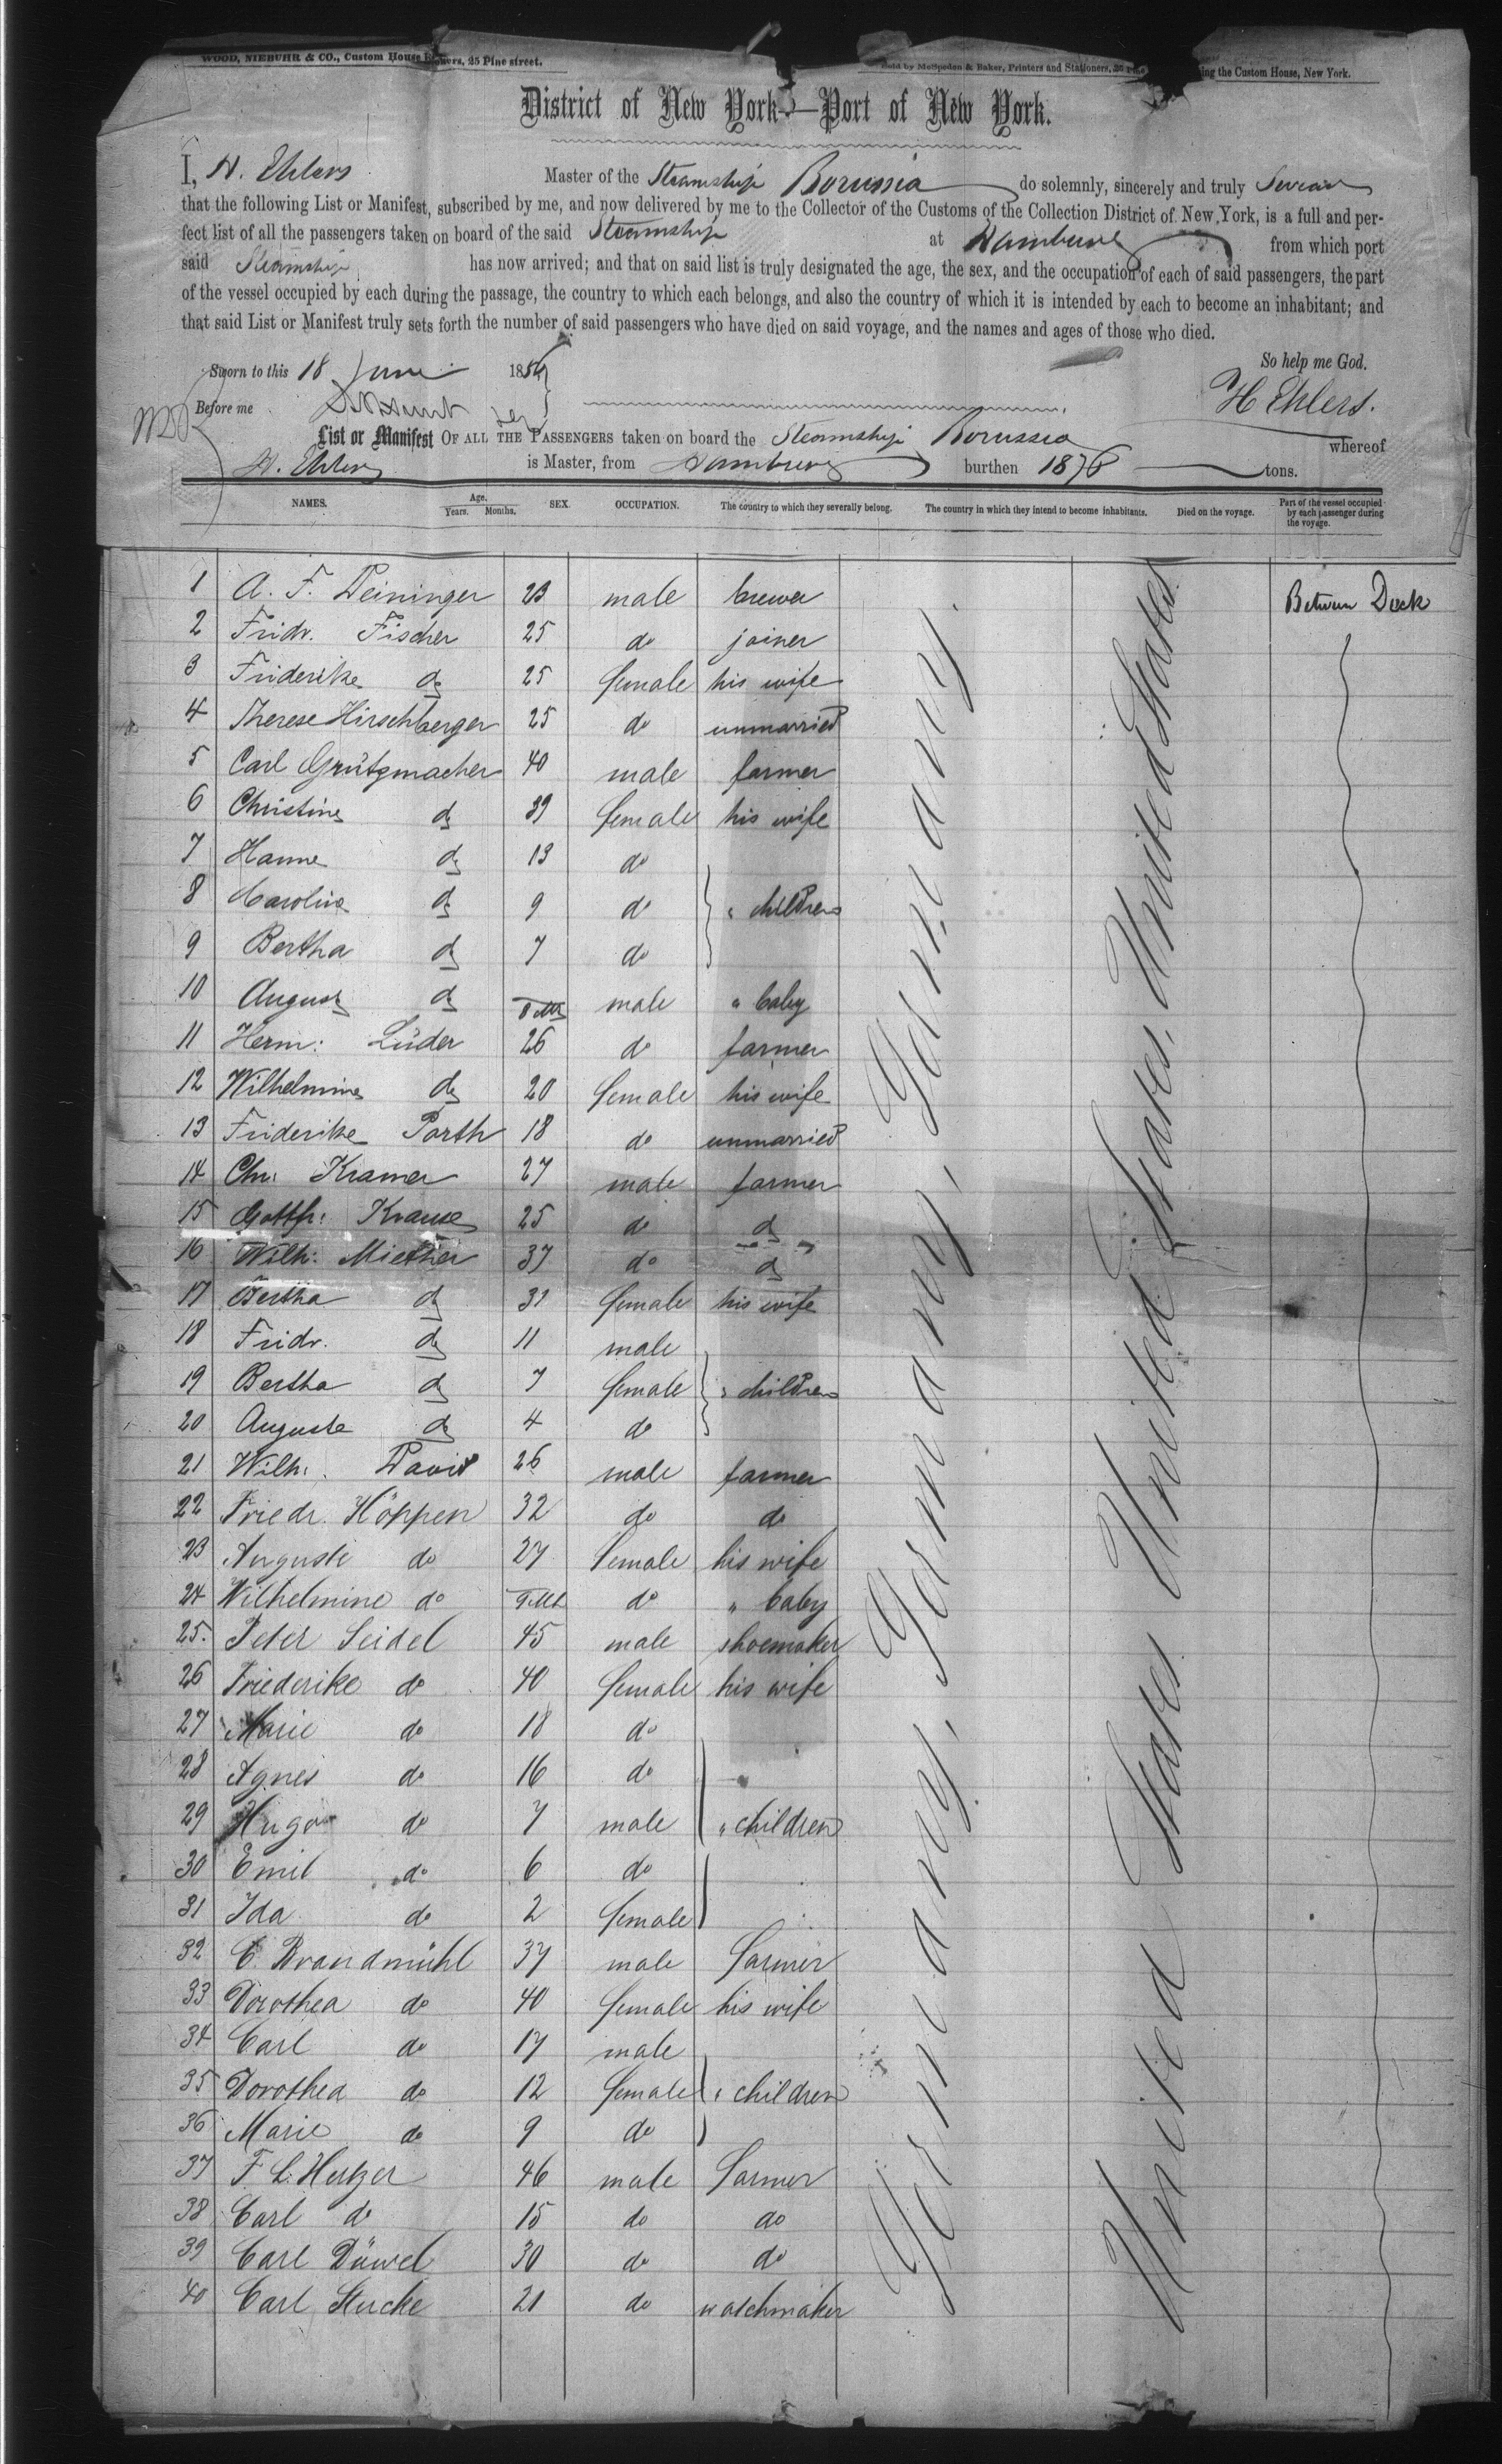 WOOD, NIEBUHR & CO., Custom House Brokers, 25 Pine street.
Sold by McSpedon & Baker, Printers and Stationers, 25 Pine ing the Custom House, New York.
District of New York—Port of New York.
I, H. Ehlers Master of the Steamship Borussia do solemnly, sincerely and truly Swear
that the following List or Manifest, subscribed by me, and now delivered by me to the Collector of the Customs of the Collection District of New York, is a full and per-
fect list of all the passengers taken on board of the said Steamship at Hamburg from which port
said Steamship has now arrived; and that on said list is truly designated the age, the sex, and the occupation of each of said passengers, the part
of the vessel occupied by each during the passage, the country to which each belongs, and also the country of which it is intended by each to become an inhabitant; and
that said List or Manifest truly sets forth the number of said passengers who have died on said voyage, and the names and ages of those who died.
So help me God.
Sworn to this 18 June 185
Before me
H Ehlers.
List or Manifest OF ALL THE PASSENGERS taken on board the Steamship Borussia whereof
H. Ehlers is Master, from Hamburg burthen 1876 tons.
NAMES. Age. Years. Months. SEX. OCCUPATION. The country to which they severally belong. The country in which they intend to become inhabitants. Died on the voyage. Part of the vessel occupied by each passenger during the voyage.
1 A. F. Deininger 23 male brewer Between Deck
2 Fridr. Fischer 25 do joiner
3 Friderike do 25 female his wife
4 Therese Hirschberger 25 do unmarried
5 Carl Grützmacher 40 male farmer
6 Christine do 39 female his wife
7 Hanne do 13 do
8 Caroline do 9 do " children
9 Bertha do 7 do
10 August do 8 Mts male " baby
11 Herm: Lüder 26 do farmer
12 Wilhelmine do 20 female his wife
13 Friderike Porth 18 do unmarried
14 Chr: Kramer 27 male farmer
15 Gottfr: Krause 25 do do
16 Wilh: Miether 37 do do
17 Bertha do 31 female his wife
18 Fridr. do 11 male
19 Bertha do 7 female " children
20 Auguste do 4 do
21 Wilh: David 26 male farmer
22 Friedr. Höppen 32 do do
23 Auguste do 27 female his wife
24 Wilhelmine do 9 Mts do " baby
25. Peter Seidel 45 male shoemaker
26 Friederike do 40 female his wife
27 Marie do 18 do
28 Agnes do 16 do
29 Hugo do 7 male " children
30 Emil do 6 do
31 Ida do 2 female
32 C. Brandmühl 37 male farmer
33 Dorothea do 40 female his wife
34 Carl do 17 male
35 Dorothea do 12 female " children
36 Marie do 9 do
37 F. C. Hertzer 46 male farmer
38 Carl do 15 do do
39 Carl Düwel 30 do do
40 Carl Stucke 21 do watchmaker
Germany. Germany. Germany. Germany.
United States United States. United States. United States